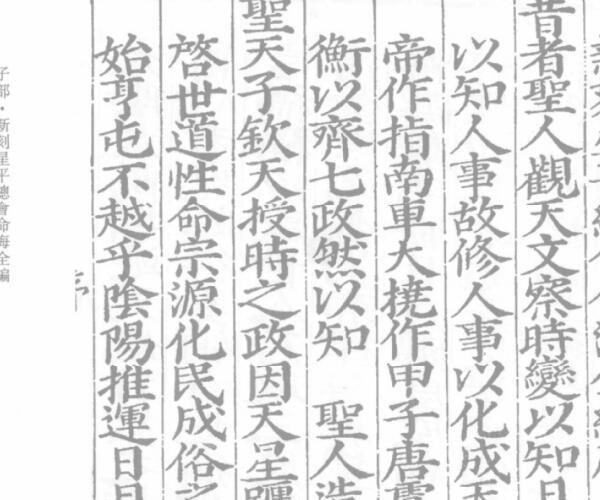 昔者聖人觀天文察時變以知
以知人事故修人事以化成
帝作指南車大撓作甲子唐
衡以齊七政然以知　聖人造
聖天子欽天授時之政因天星躔
啓世道性命宗源化民成俗之
始亨屯不越乎陰陽推運日
子部・新刻星平總會命海全編